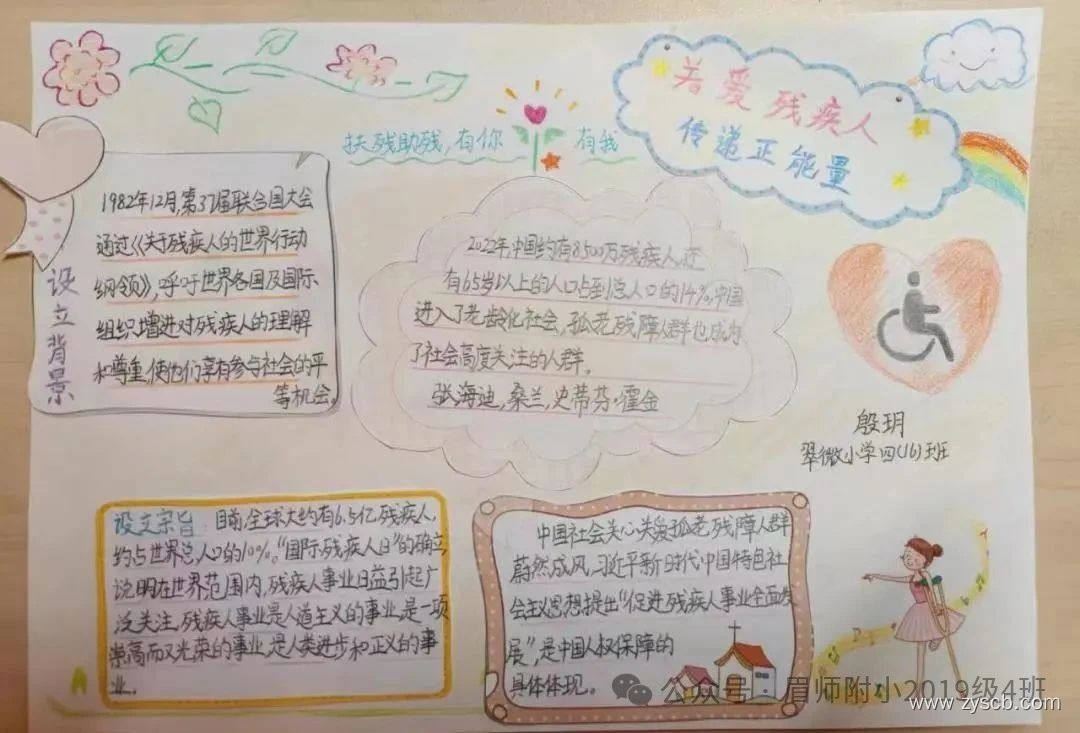 关爱残疾人
传递正能量
扶残助残,有你 有我
设立背景
1982年12月,第37届联合国大会
通过《关于残疾人的世界行动
纲领》,呼吁世界各国及国际
组织增进对残疾人的理解
和尊重,使他们享有参与社会的平
等机会。
2022年,中国约有8500万残疾人,还
有65岁以上的人口占到总人口的14%,中国
进入了老龄化社会,孤老残障人群也成为
了社会高度关注的人群。
张海迪,桑兰,史蒂芬·霍金
殷玥
翠微小学四(16)班
设立宗旨 目前,全球大约有6.5亿残疾人,
约占世界总人口的10%。“国际残疾人日”的确立,
说明在世界范围内,残疾人事业日益引起广
泛关注,残疾人事业是人道主义的事业,是一项
崇高而又光荣的事业,是人类进步和正义的事
业。
中国社会关心关爱孤老残障人群
蔚然成风,习近平新时代中国特色社
会主义思想提出“促进残疾人事业全面发
展”,是中国人权保障的
具体体现。
公众号 眉师附小2019级4班
www.zyscb.com